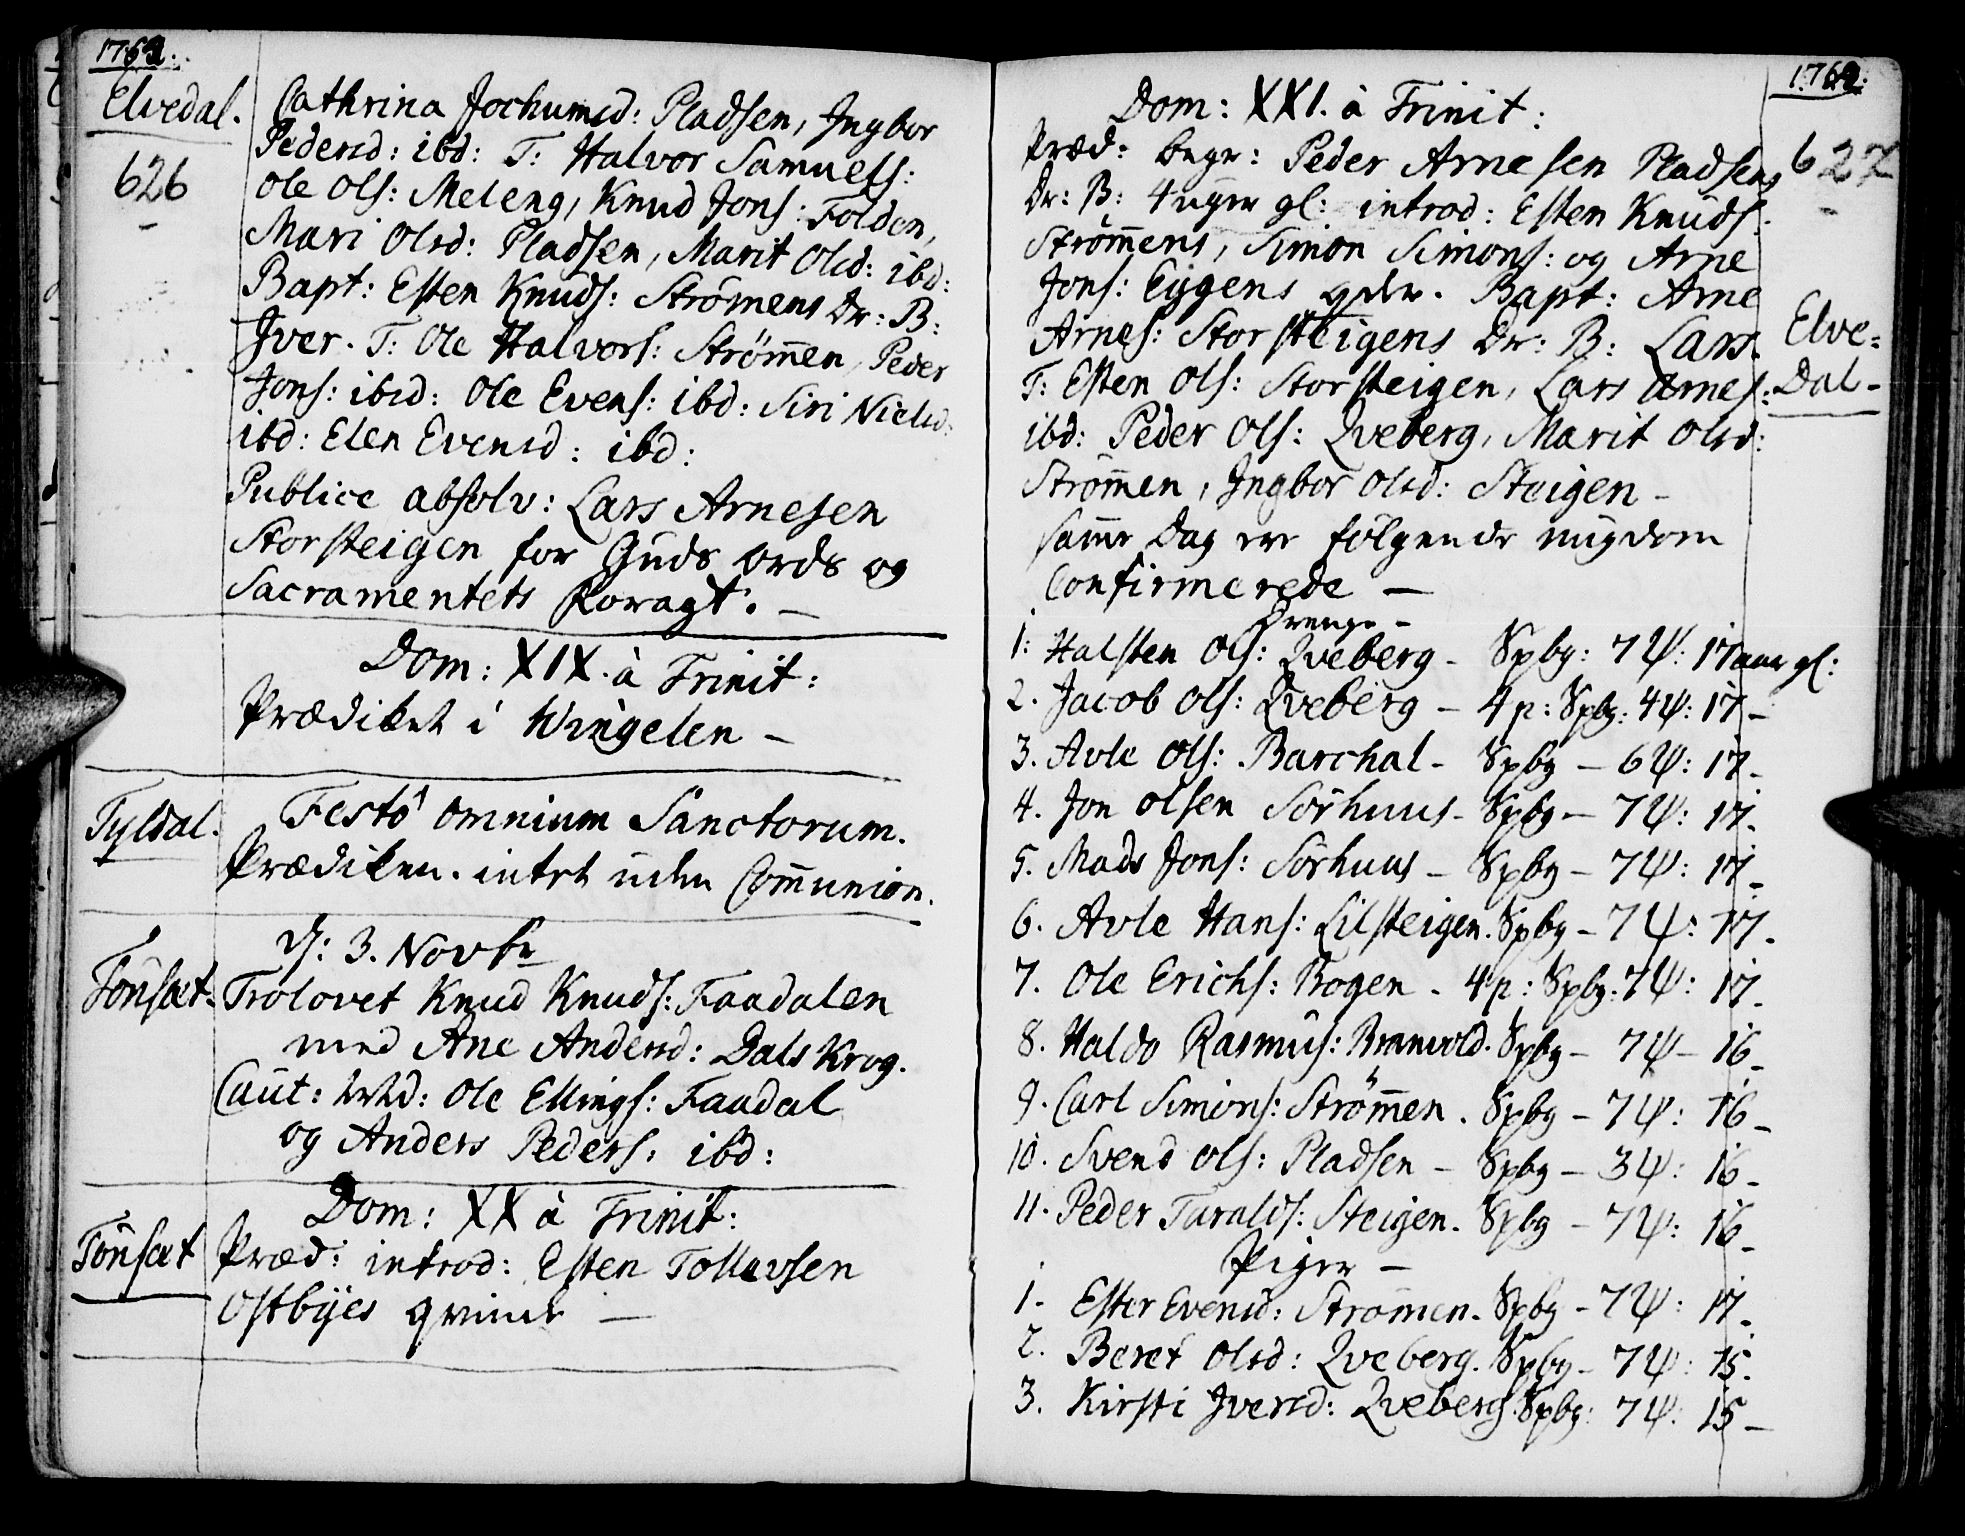 1762.
Elvedal.
626
Cathrina Jochumsd: Pladsen, Ingbor
Pedersd: ibd: T: Halvor Samuels:
Ole Ols: Meleng, Knud Jons: Folden,
Mari Olsd: Pladsen, Marit Olsd: ibd:
Bapt: Esten Knuds: Strømens Dr: B:
Iver. T: Ole Halvors: Strømen, Peder
Jons: ibid: Ole Evens: ibd: Siri Nielsd:
ibd: Elen Evensd: ibd:
Publice absolv: Lars Arnesen
Storsteigen for Guds ords og
Sacramentets Foragt. —
Dom: XIX. à Trinit:
Prædiket i Wingelen —
Tyldal.
Festo omnium Sanctorum.
Prædiken. intet uden Communion.
Tønsæt.
D: 3. Novbr
Trolovet Knud Knuds: Faadalen
med Ane Andersd: Dals Krog.
Caut: Ole Ellings: Faadal
og Anders Peders: ibd:
Dom: XX à Trinit:
Tønsæt
Præd: introd: Esten Tollevsen
Østbyes qvinde —
1762.
627
Dom: XXI. à Trinit:
Præd: begr: Peder Arnesen Pladsens
Dr: B: 4 uger gl: introd: Esten Knuds:
Strømens, Simon Simons: og Arne
Jons: Eygens qder. Bapt: Arne
Elve-
Dal-
Arnes: Storsteigens Dr: B: Lars.
T: Esten Ols: Storsteigen, Lars Arnes:
ibd: Peder Ols: Qveberg, Marit Olsd:
Strømen, Ingbor Olsd: Steigen -
samme Dag ere følgende ungdom
Confirmerede —
Drenge -
1: Halsten Ols: Qveberg - Spbg: 7 Ψ: 17 aar gl:
2. Jacob Ols: Qveberg - 4 p: Spbg: 4 Ψ: 17 -
3. Avle Ols: Barchal - Spbg - 6 Ψ: 17 -
4. Jon Olsen Sörhuus - Spbg - 7 Ψ: 17.
5. Mads Jons: Sörhuus - Spbg - 7 Ψ: 17 -
6. Avle Hans: Lilsteigen. Spbg - 7 Ψ: 17.
7. Ole Erichs: Bogen - 4 p: Spbg: 7 Ψ: 17 -
8. Haldo Rasmus: Branvold. Spbg - 7 Ψ - 16 -
9. Carl Simons: Strømen. Spbg - 7 Ψ: 16 -
10. Svend Ols: Pladsen - Spbg - 3 Ψ: 16 -
11. Peder Taralds: Steigen. Spbg - 7 Ψ: 16 -
Piger —
1. Ester Evensd: Strømen. Spbg - 7 Ψ: 17 -
2. Beret Olsd: Qveberg. Spbg - 7 Ψ: 15.
3. Kirsti Iversd: Qveberg. Spbg: 7 Ψ: 15 -